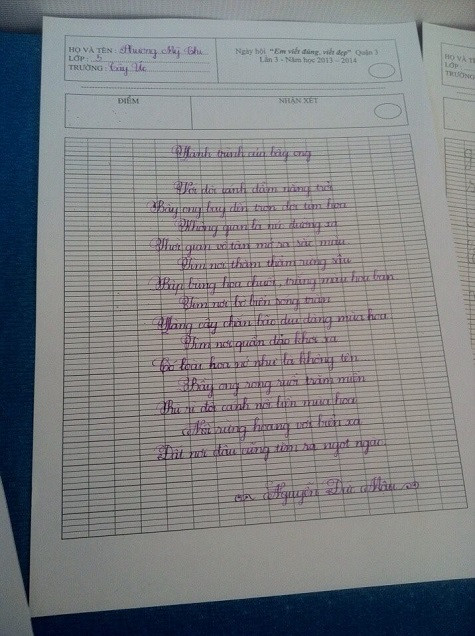 HỌ VÀ TÊN : Phương Mỹ Chi
LỚP : 5
TRƯỜNG : Cây Úc
Ngày hội "Em viết đúng, viết đẹp" Quận 3
Lần 3 - Năm học 2013 – 2014
ĐIỂM
NHẬN XÉT
Hành trình của bầy ong
Với đôi cánh đẫm nắng trời
Bầy ong bay đến trọn đời tìm hoa
Không gian là nẻo đường xa
Thời gian vô tận mở ra sắc màu
Tìm nơi thăm thẳm rừng sâu
Bập bùng hoa chuối, trắng màu hoa ban
Tìm nơi bờ biển sóng tràn
Hàng cây chắn bão dịu dàng mùa hoa
Tìm nơi quần đảo khơi xa
Có loài hoa nở như là không tên
Bầy ong rong ruổi trăm miền
Rù rì đôi cánh nối liền mùa hoa
Nối rừng hoang với biển xa
Đất nơi đâu cũng tìm ra ngọt ngào.
Nguyễn Đức Mậu
HỌ VÀ TÊ
LỚP
TRƯỜNG